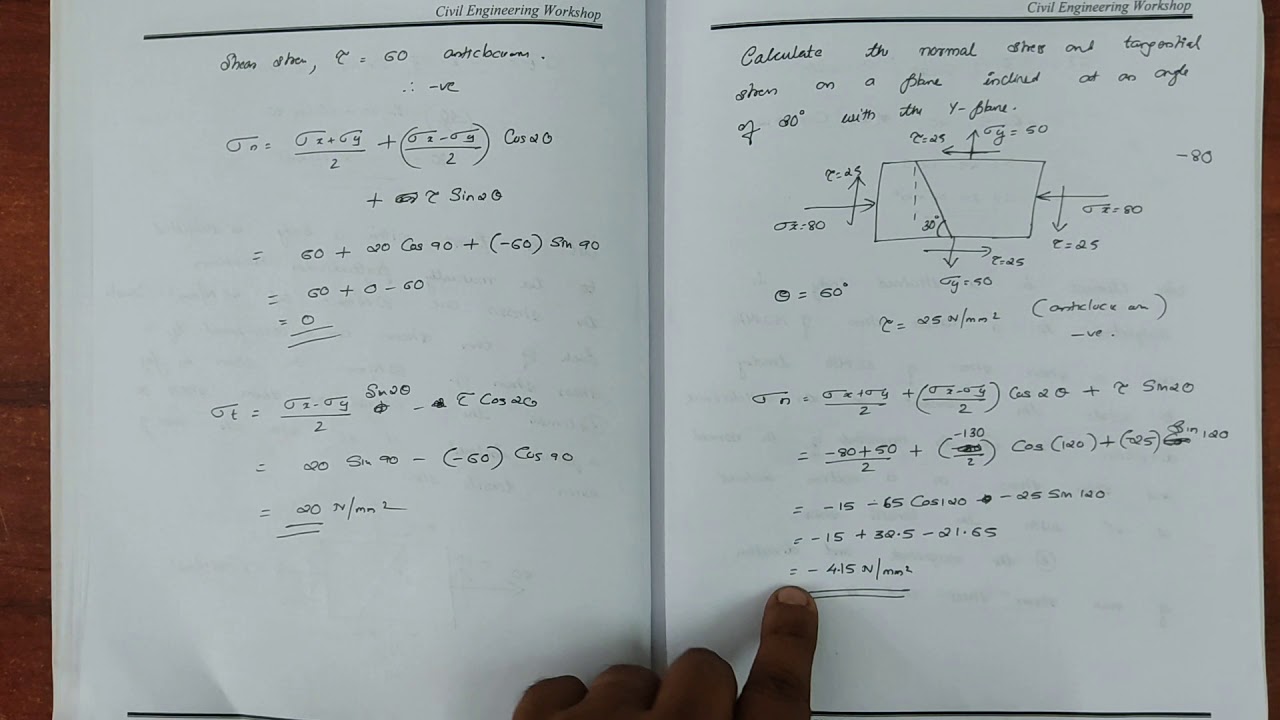 Civil Engineering Workshop
Shear stress, τ = 60 anticlockwise.
∴ -ve
σn = σx+σy/2 + (σx-σy/2) Cos2θ
+ τ Sin2θ
= 60 + 20 Cos 90 + (-60) Sin 90
= 60 + 0 - 60
= 0
σt = σx-σy/2 Sin2θ - τ Cos2θ
= 20 Sin 90 - (-60) Cos 90
= 20 N/mm²
Civil Engineering Workshop
Calculate the normal stress and tangential
stress on a plane inclined at an angle
of 30° with the Y-plane.
τ=25 σy = 50
-80
τ=25
σx=80
30°
σx=80
τ=25
τ=25
σy=50
θ = 60°
τ = 25 N/mm² (anticlock an)
-ve.
σn = σx+σy/2 + (σx-σy/2) Cos2θ + τ Sin2θ
= -80+50/2 + (-130/2) Cos(120) + (-25) Sin 120
= -15 -65 Cos120 - 25 Sin 120
= -15 + 32.5 - 21.65
= - 4.15 N/mm²